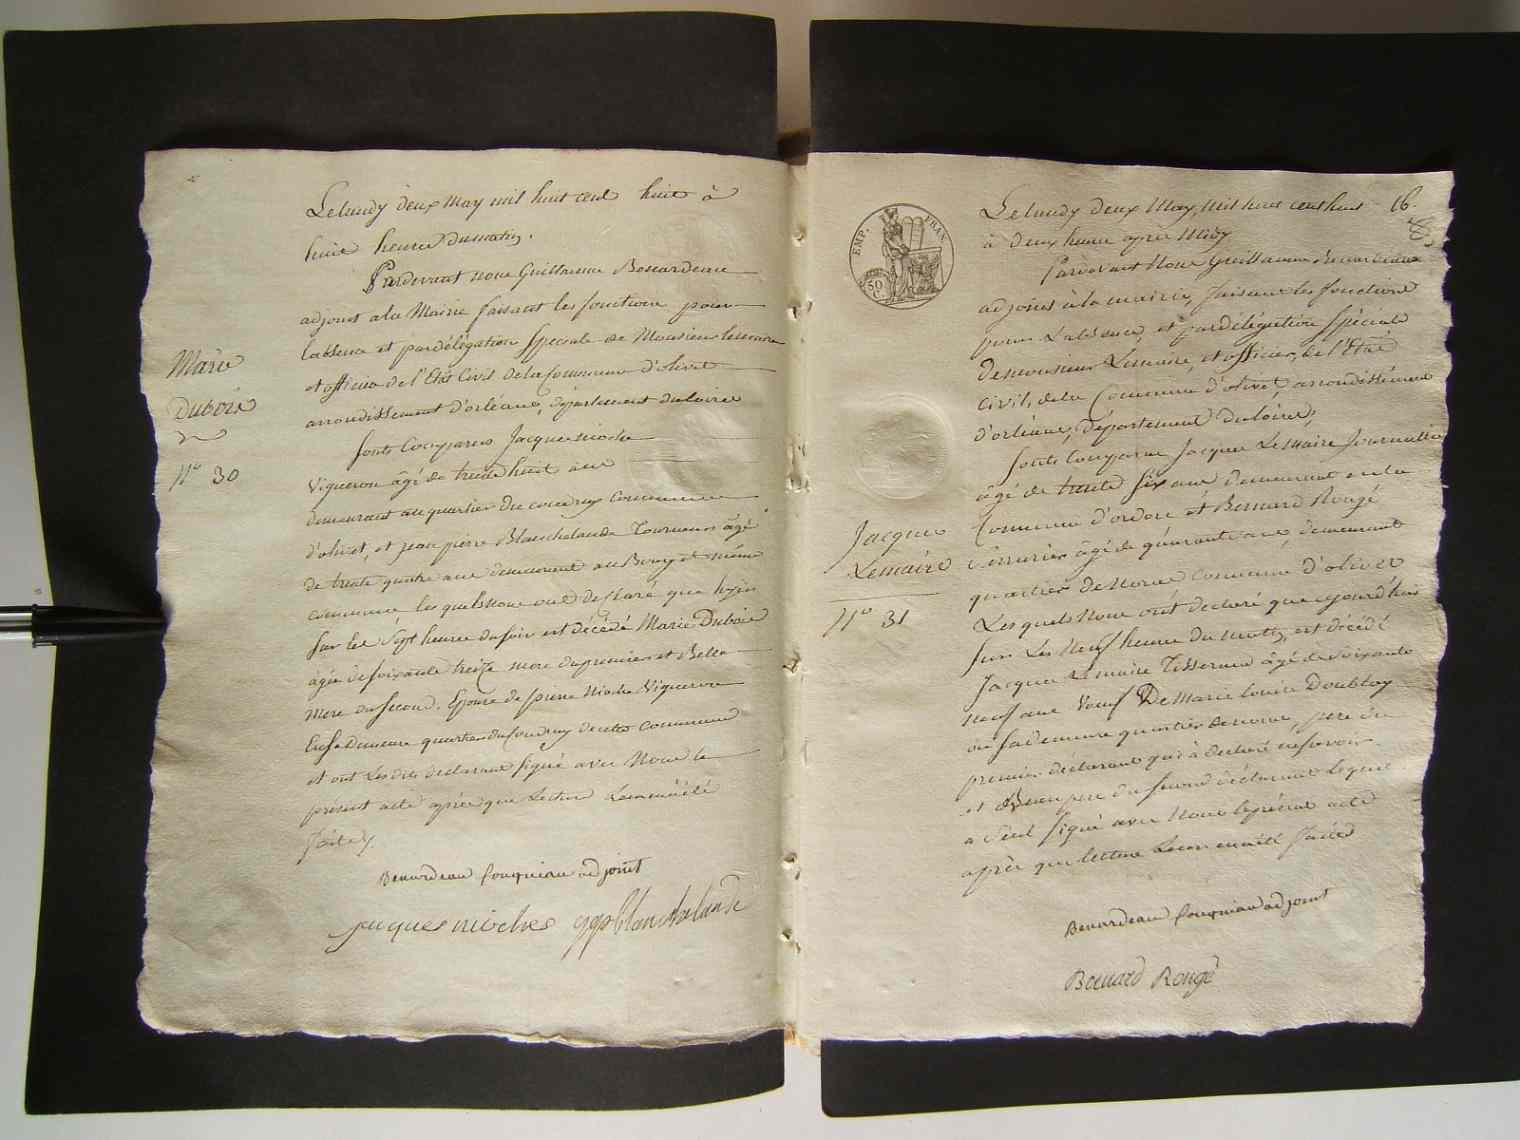 Le lundy deux may mil huit cent huit à
huit heures du matin.
Pardevant nous Guillaume Benardeau
adjoint a la Mairie faisant les fonctions pour
labsence et par délégation speciale de Monsieur le maire
et officier de l'Etat Civil de la Commune d'olivet
arrondissement d'orléans, département du loiret
Marie
Dubois
N° 30
sont comparus Jacques nioche
vigneron âgé de trente huit ans
demeurant au quartier du coudray commune
d'olivet, et jean pierre Blanchelande Tourneur âgé
de trente quatre ans demeurant au Bourg et même
commune les quels nous ont déclaré que hyer
sur les sept heures du soir est décédé Marie Dubois
agée de soixante treize mere du premier et Belle
mere du second. Epouse de pierre Nioche Vigneron
En sa demeure quartier du Coudray de cette commune
et ont les dits declarans signé avec Nous le
présent acte après que lecture leur en été
faite.
Benardeau Couqniau adjoint
jacques nioches gjp blanchelande
EMP. FRAN.
50 C.
Le lundy deux May, mil huit cent huit 16.
à deux heures après Midy
Pardevant Nous Guillaume Benardeau
adjoint à la mairie, faisant les fonctions
pour L'absence, et par délégation spéciale
de monsieur Lemaire, et officier, de l'Etat
civil, de la Commune d'olivet arrondissement
d'orléans, département du loiret,
sont comparus Jacques Lemaire Journallier
âgé de trente six ans demeurant en la
Commune d'ardon et Bernard Rougé
Jacques
Lemaire
N° 31
serrurier âgé de quarante ans, demeurant
quartier de Noras Commune d'olivet
Les quels Nous ont déclaré que ajourd'huis
sur Les Neuf heures du matin, est décédé
Jacques Lemaire Tisserand âgé de soixante
neuf ans Veuf De Marie louise Doubloy
en sa demeure quartier de noras, pere du
premier déclarant qui à déclaré ne savoir
et Beau pere du second déclarant lequel
a seul signé avec Nous le présent acte
après que lecture leur en a été faite
Benardeau Couqniau adjoint
Bernard Rougé